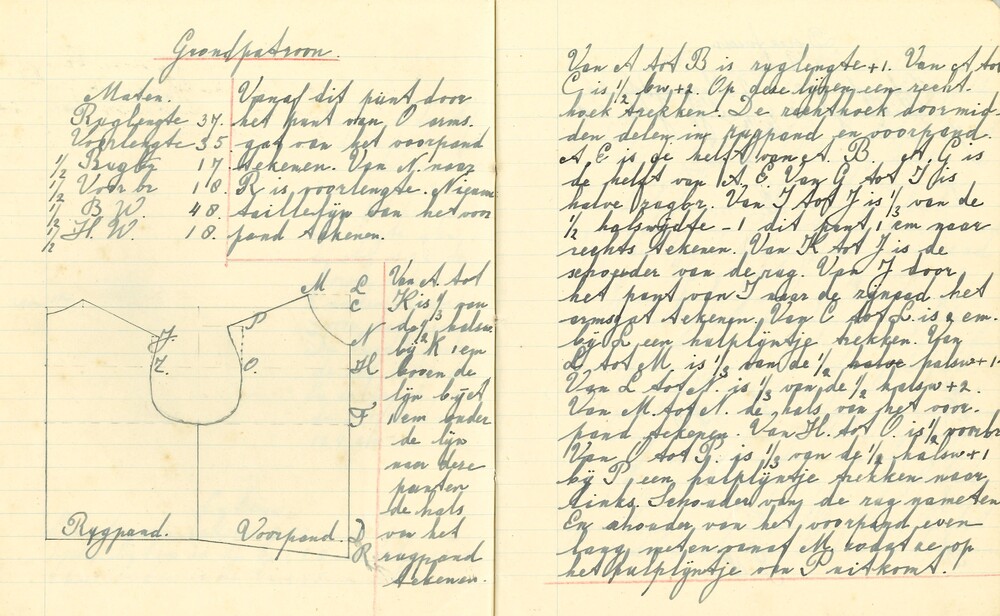 Grondpatroon.
Maten.
Ruglengte 37.
Voorlengte 35
1/2 Rugbr 17
1/2 Voorbr 18.
1/2 B. W. 48.
1/2 H. W. 18.
Vanaf dit punt door
het punt van O arms.
gat van het voorpand
tekenen. Van N naar
R is voorlengte. Nieuwe
taillelijn van het voor
pand tekenen.
M
L
C
N
H
F
D
R
P
O.
J
I.
Rugpand.
Voorpand.
Van A tot
K is 1/3 van
de 1/2 halsw
bij K 1 em
boven de
lijn bij A
1 em onder
de lijn
naar deze
punten
de hals
van het
rugpand
tekenen.
Van A tot B is ruglengte +1. Van A tot
C is 1/2 bw +2. Op deze lijnen een recht-
hoek trekken. De rechthoek doormid-
den delen in rugpand en voorpand.
A. E is de helft van A. B. A. G is
de helft van A. E. Van G tot I is
halve rugbr. Van I tot J is 1/3 van de
1/2 halswijdte -1 dit punt 1 em naar
rechts tekenen. Van K tot J is de
schouder van de rug. Van J door
het punt van I naar de zijnaad het
armsgat tekenen. Van C tot L is 2 em.
bij L een hulplijntje trekken. Van
L tot M. is 1/3 van de 1/2 halve halsw +1
Van L tot N. is 1/3 van de 1/2 halsw +2.
Van M. tot N. de hals van het voor-
pand tekenen. Van H. tot O. is 1/2 voorbr
Van O tot P. is 1/3 van de 1/2 halsw +1
bij P een hulplijntje trekken naar
links. Schouder van de rug nameten
En shouder van het voorpand even
lang meten vanaf M, zodat ze op
het hulplijntje van P uitkomt.